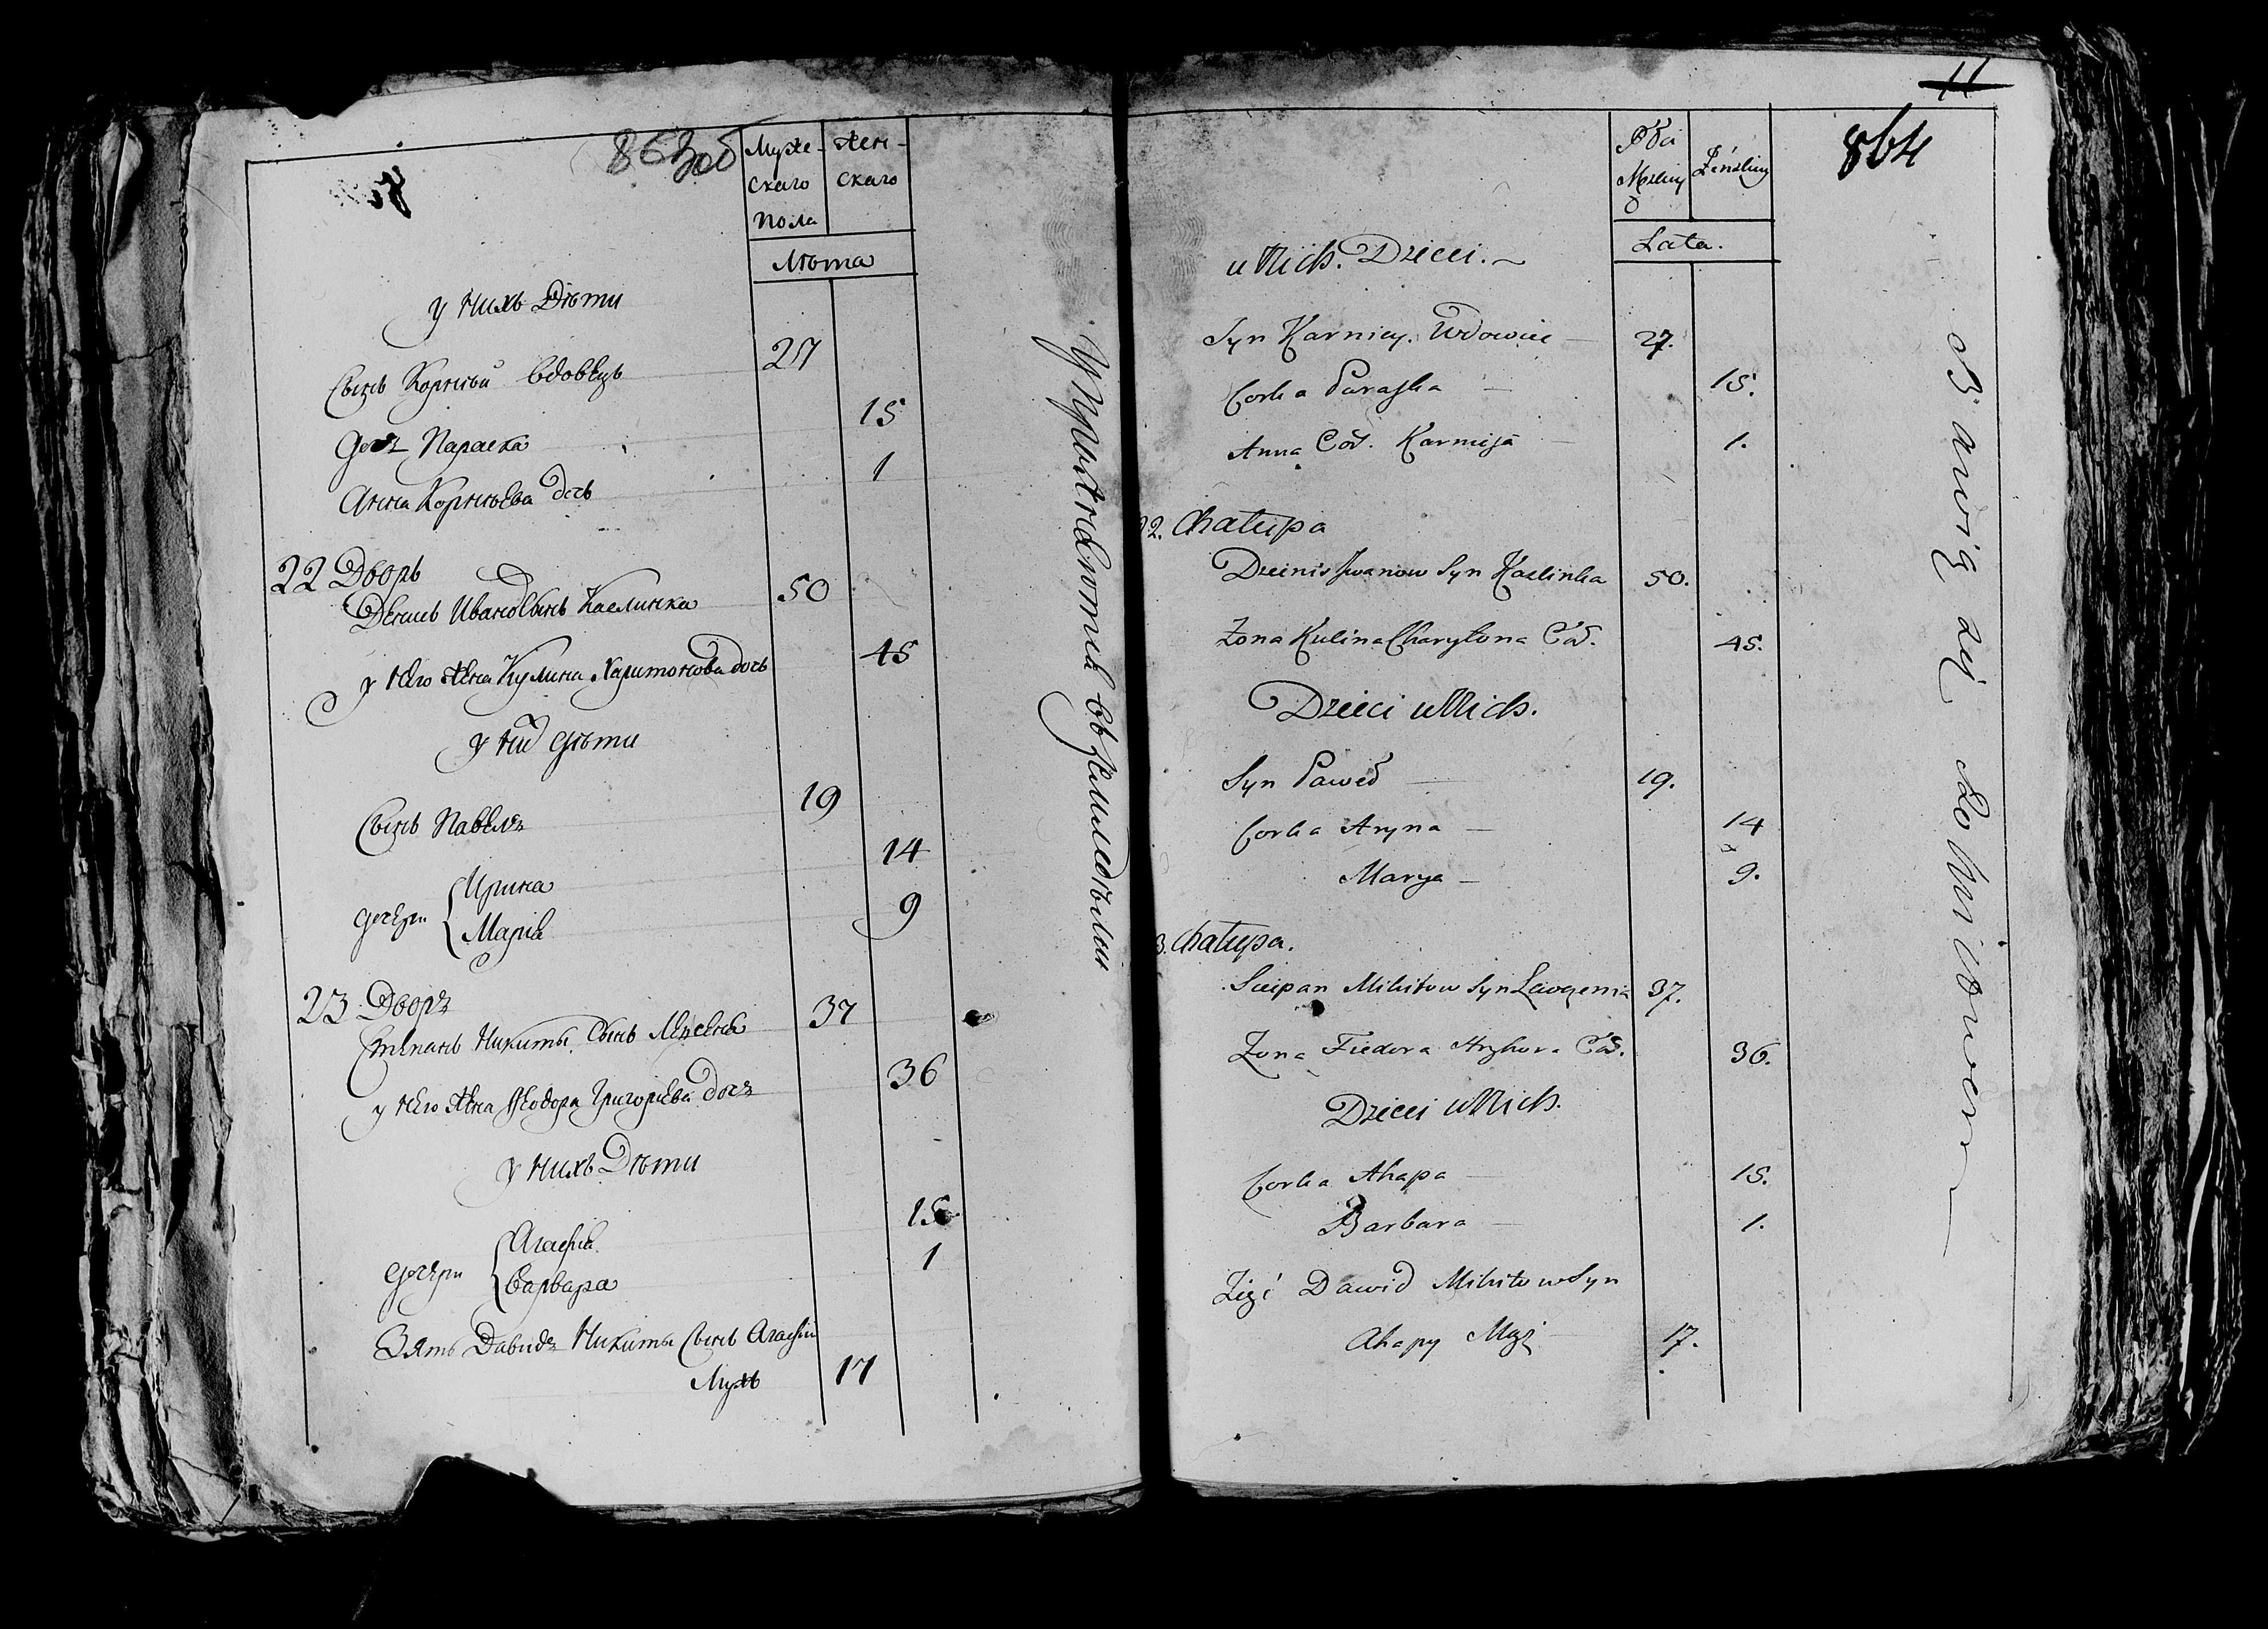 863об
Муже-
скаго
пола
жен-
скаго
Лѣта
у нихъ дѣти
Сынъ Корнѣй вдовецъ 27
дочь Параска 15
Анна Корнѣева дочь 1
22 Дворъ
Денисъ Ивановъ сынъ Каслинка 50
у него жена Кулина Харитонова дочь 45
у них дѣти
Сынъ Павелъ 19
дочери { Ирина 14
Марія 9
23 Дворъ
Степанъ Никиты Сынъ 37
у него жена Ѳеодора Григорьева дочь 36
у нихъ дѣти
дочери { Агафія 15
Варвара 1
Зять Давидъ Никиты Сынъ Агафіи
Мужъ 17
11
864
Płci
Lata.
u Nich. Dzieci.
Syn Karniey. Wdowiec 27.
Corka Paraska 15.
Anna Cor. Karnieja 1.
22. Chałupa
Dzienis Iwanow Syn Kaslinka 50.
Żona Kulina Charytona Cor. 45.
Dzieci u Nich.
Syn Paweł 19.
Corka Aryna 14
Marya 9.
3. Chałupa.
Sciepan Mikitow Syn 37.
Żona Fiedora Hryhora Cor. 36.
Dzieci u Nich.
Corka Ahapa 15.
Barbara 1.
Zięć Dawid Mikitow Syn
Ahapy Mąż 17.